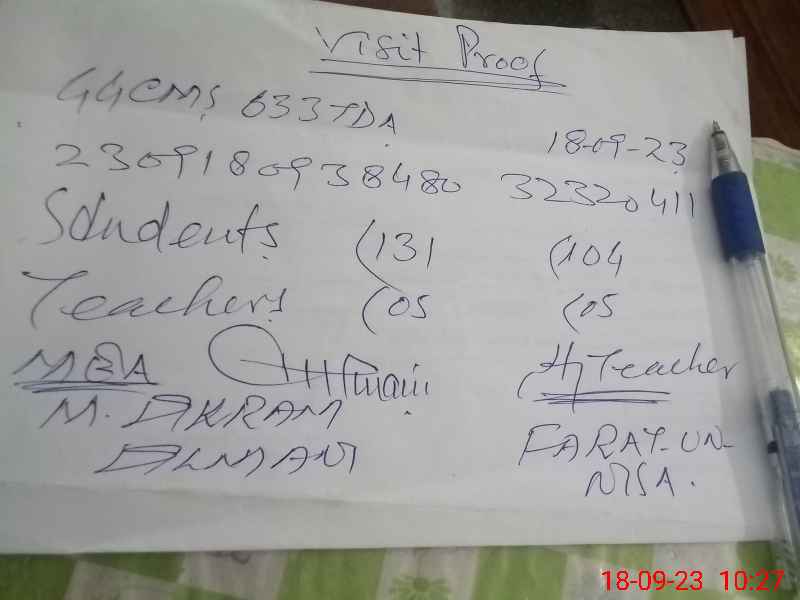 Visit Proof
GGCMS 633TDA
18-09-23
2309180938480 32320411
Students (131 (104
Teachers (05 (05
MEA H/Teacher
M. AKRAM FARAT-UN-
ALMANI NISA.
18-09-23 10:27